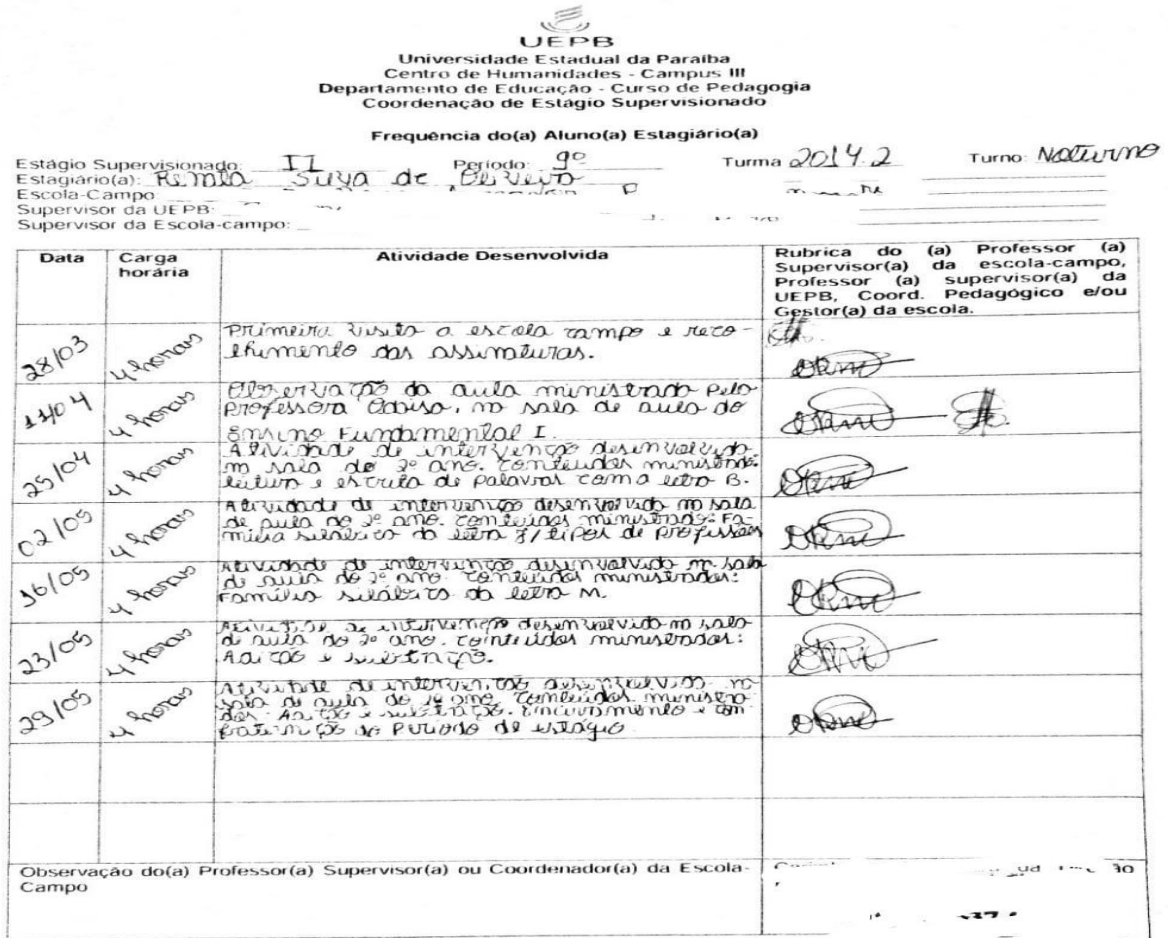 UEPB
Universidade Estadual da Paraíba
Centro de Humanidades - Campus III
Departamento de Educação - Curso de Pedagogia
Coordenação de Estágio Supervisionado
Frequência do(a) Aluno(a) Estagiário(a)
Estágio Supervisionado: II Período: 9º Turma 2014.2 Turno: Noturno
Estagiário(a): Renata de Oliveira
Escola-Campo
Supervisor da UEPB:
Supervisor da Escola-campo:
Data Carga horária Atividade Desenvolvida Rubrica do (a) Professor (a) Supervisor(a) da escola-campo, Professor (a) supervisor(a) da UEPB, Coord. Pedagógico e/ou Gestor(a) da escola.
28/03 4 horas Primeira visita a escola campo e reco-
lhimento das assinaturas.
11/04 4 horas Observação da aula ministrada pela
professora Odaisa, na sala de aula do
Ensino Fundamental I.
25/04 4 horas Atividade de intervenção desenvolvida
na sala do 2º ano. Conteúdos ministrado:
leitura e escrita de palavras com a letra B.
02/05 4 horas Atividade de intervenção desenvolvida na sala
de aula do 2º ano. Conteúdos ministrado: Fa-
mília silábica da letra /tipos de profissões
16/05 4 horas Atividade de intervenção desenvolvida na sala
de aula do 2º ano. Conteúdos ministrados:
Família silábica da letra M.
23/05 4 horas Atividade de intervenção desenvolvida na sala
de aula do 2º ano. Conteúdos ministrados:
Adição e subtração.
29/05 4 horas Atividade de intervenção desenvolvida na
sala de aula do ano. Conteúdos ministra-
dos: Adição e subtração. Encerramento e con-
fraternização do período de estágio
Observação do(a) Professor(a) Supervisor(a) ou Coordenador(a) da Escola-
Campo